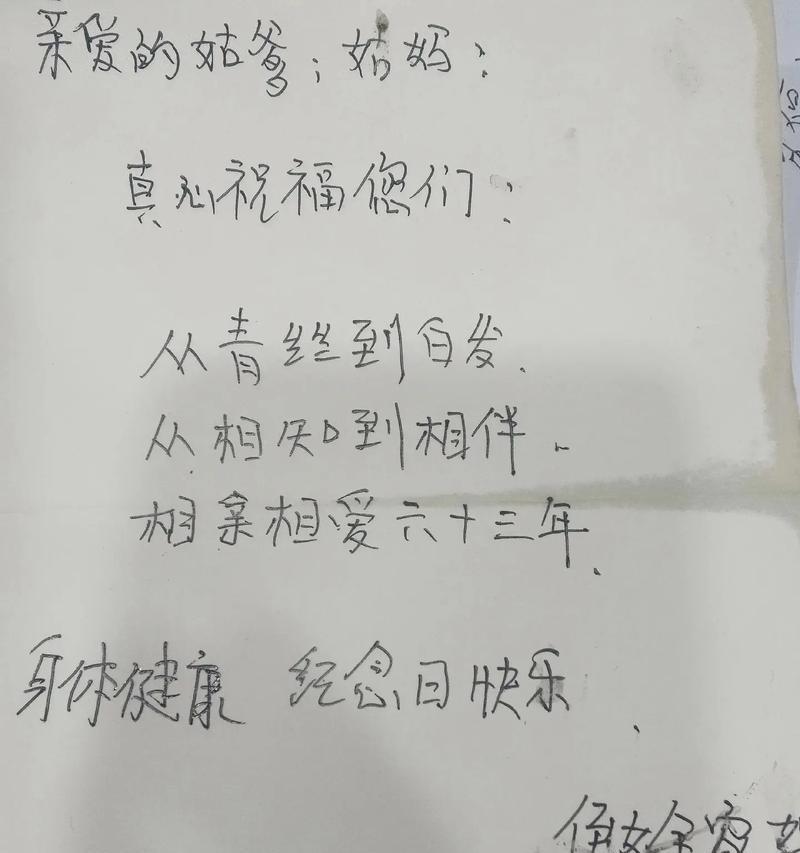 亲爱的姑爹；姑妈：
真心祝福您们：
从青丝到白发.
从相知到相伴.
相亲相爱六十三年.
身体健康 纪念日快乐.
侄女全家